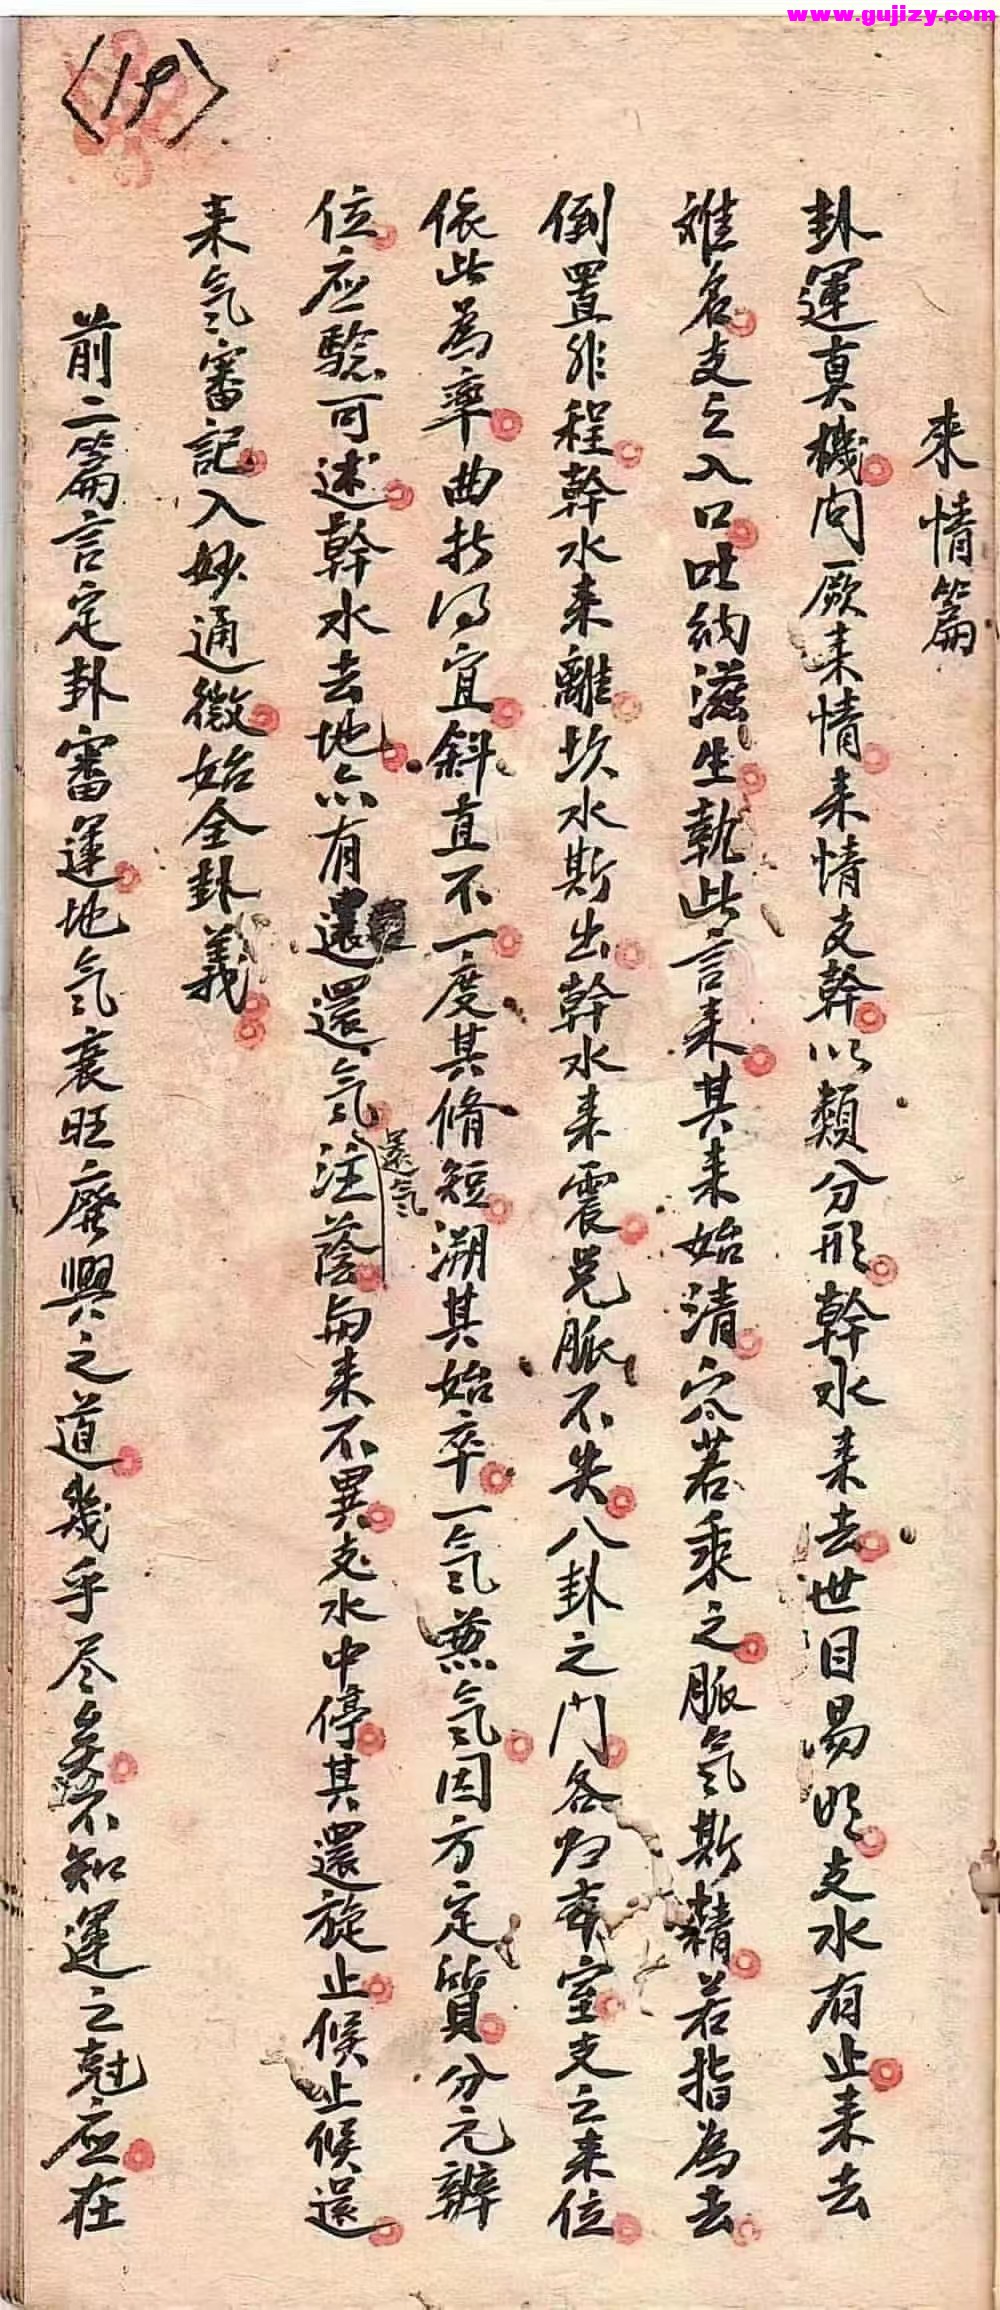 www.gujizy.com
〈19〉
來情篇
卦運真機问厥来情来情支幹以類分形幹水来去世目易明支水有止来去
难名支之入口吐納滋生執此言来其来始清穴若乘之脈氣斯精若指為去
倒置非程幹水来離坎水斯出幹水来震兑脈不失八卦之门各归本室支之来位
依此為率曲折得宜斜直不一度其脩短溯其始卒一氣兼氣因方定質分元辨
位应騐可述幹水去地亦有還還氣注蔭與来不異支水中停其還旋止候止候還
還氣
来氣審記入妙通微始全卦義
前二篇言定卦審運地氣衰旺廢興之道幾乎尽矣不知運之尅应在